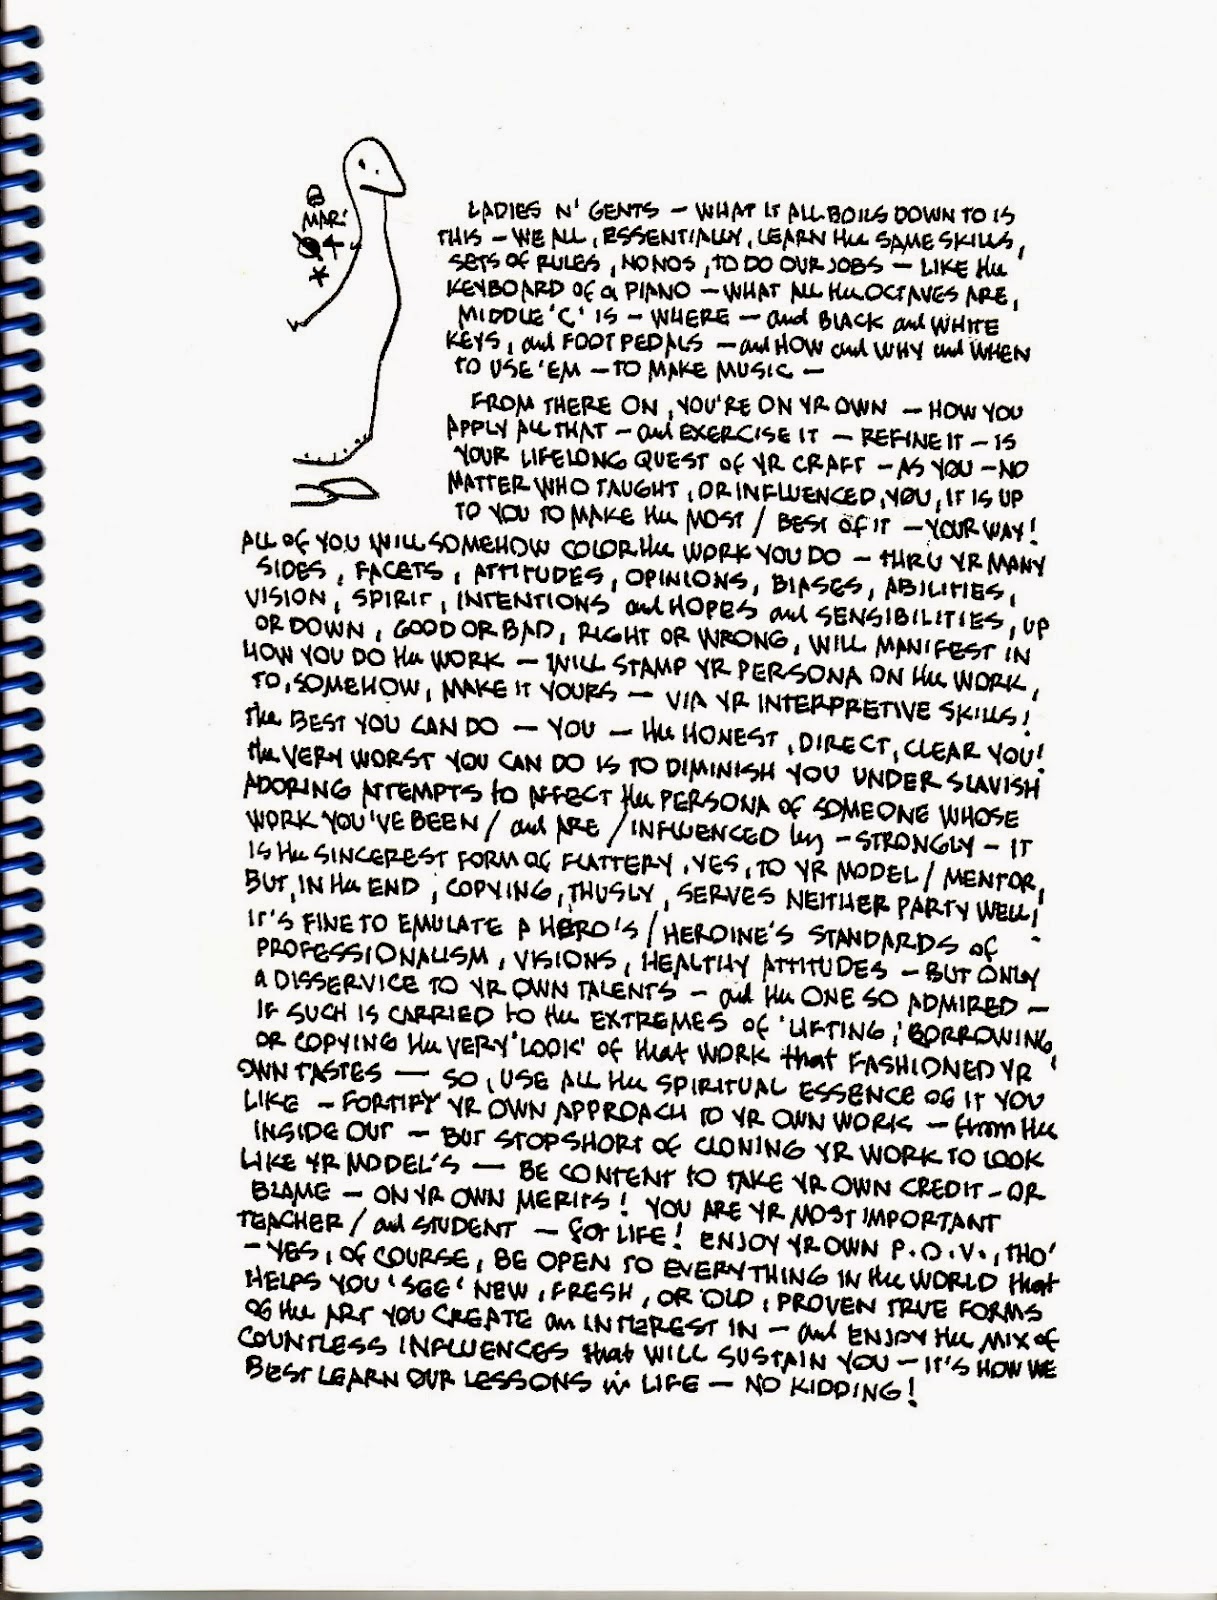 8
MAR'
04
LADIES N' GENTS — WHAT IT ALL BOILS DOWN TO IS
THIS — WE ALL, ESSENTIALLY, LEARN the SAME SKILLS,
SETS OF RULES, NO NOS, TO DO OUR JOBS — LIKE the
KEYBOARD OF a PIANO — WHAT ALL the OCTAVES ARE,
MIDDLE 'C' IS — WHERE — and BLACK and WHITE
KEYS, and FOOT PEDALS — and HOW and WHY and WHEN
TO USE 'EM — TO MAKE MUSIC —
FROM THERE ON, YOU'RE ON YR OWN — HOW YOU
APPLY ALL THAT — and EXERCISE IT — REFINE IT — IS
YOUR LIFELONG QUEST OF YR CRAFT — AS YOU — NO
MATTER WHO TAUGHT, OR INFLUENCED, YOU, IT IS UP
TO YOU TO MAKE the MOST / BEST OF IT — YOUR WAY!
ALL OF YOU WILL SOMEHOW COLOR the WORK YOU DO — THRU YR MANY
SIDES, FACETS, ATTITUDES, OPINIONS, BIASES, ABILITIES,
VISION, SPIRIT, INTENTIONS and HOPES and SENSIBILITIES, UP
OR DOWN, GOOD OR BAD, RIGHT OR WRONG, WILL MANIFEST IN
HOW YOU DO the WORK — WILL STAMP YR PERSONA ON the WORK,
TO, SOMEHOW, MAKE IT YOURS — VIA YR INTERPRETIVE SKILLS!
the BEST YOU CAN DO — YOU — the HONEST, DIRECT, CLEAR YOU!
the VERY WORST YOU CAN DO IS TO DIMINISH YOU UNDER SLAVISH
ADORING ATTEMPTS to AFFECT the PERSONA of SOMEONE WHOSE
WORK YOU'VE BEEN / and ARE / INFLUENCED by — STRONGLY — IT
IS the SINCEREST FORM OF FLATTERY, YES, TO YR MODEL / MENTOR,
BUT, IN the END, COPYING, THUSLY, SERVES NEITHER PARTY WELL!
IT'S FINE TO EMULATE A HERO'S / HEROINE'S STANDARDS of
PROFESSIONALISM, VISIONS, HEALTHY ATTITUDES — BUT ONLY
a DISSERVICE TO YR OWN TALENTS — and the ONE SO ADMIRED —
IF SUCH IS CARRIED to the EXTREMES of 'LIFTING,' BORROWING
OR COPYING the VERY 'LOOK' OF that WORK that FASHIONED YR
OWN TASTES — SO, USE ALL the SPIRITUAL ESSENCE OF IT YOU
LIKE — FORTIFY YR OWN APPROACH TO YR OWN WORK — from the
INSIDE OUT — BUT STOP SHORT OF CLONING YR WORK TO LOOK
LIKE YR MODEL'S — BE CONTENT to TAKE YR OWN CREDIT — OR
BLAME — ON YR OWN MERITS! YOU ARE YR MOST IMPORTANT
TEACHER / and STUDENT — for LIFE! ENJOY YR OWN P.O.V., THO'
— YES, OF COURSE, BE OPEN TO EVERYTHING IN the WORLD that
HELPS YOU 'SEE' NEW, FRESH, OR OLD, PROVEN TRUE FORMS
OF the ART YOU CREATE an INTEREST IN — and ENJOY the MIX of
COUNTLESS INFLUENCES that WILL SUSTAIN YOU — IT'S HOW WE
BEST LEARN OUR LESSONS in LIFE — NO KIDDING!